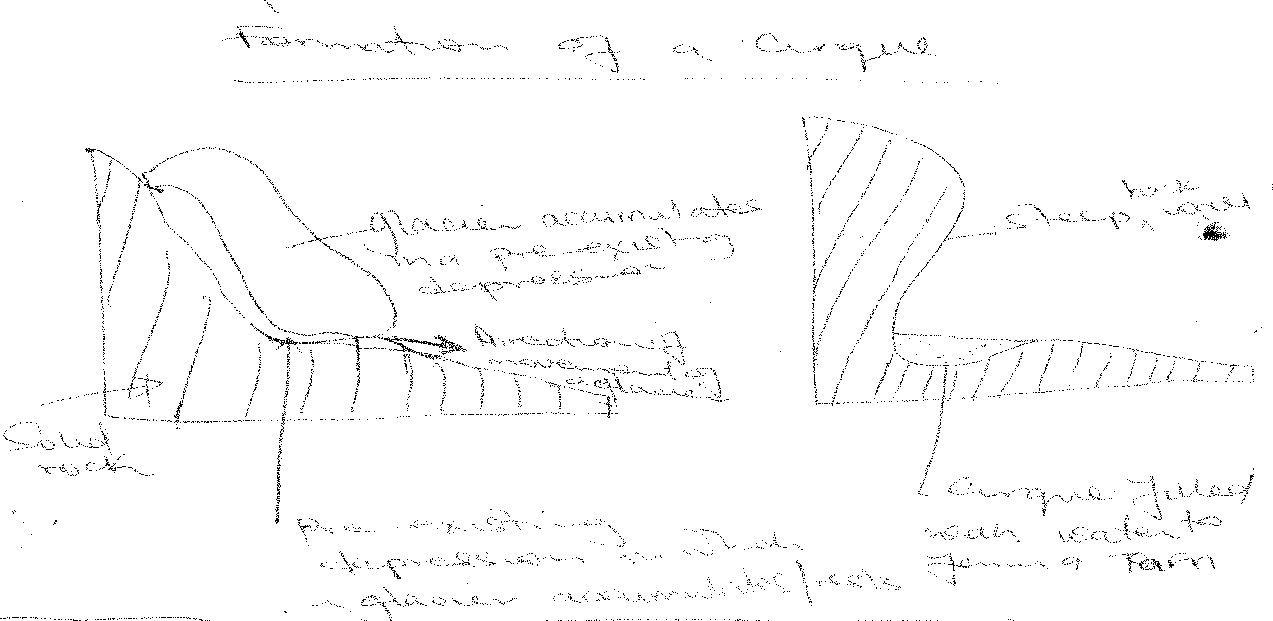 Formation of a Cirque
Glacier accumulates
in a pre-existing
depression
Direction of
movement of
glacier
Solid
rock
Pre-existing
depression in which
glacier accumulates/
back
Steep wall
Cirque filled
with water to
form a Tarn